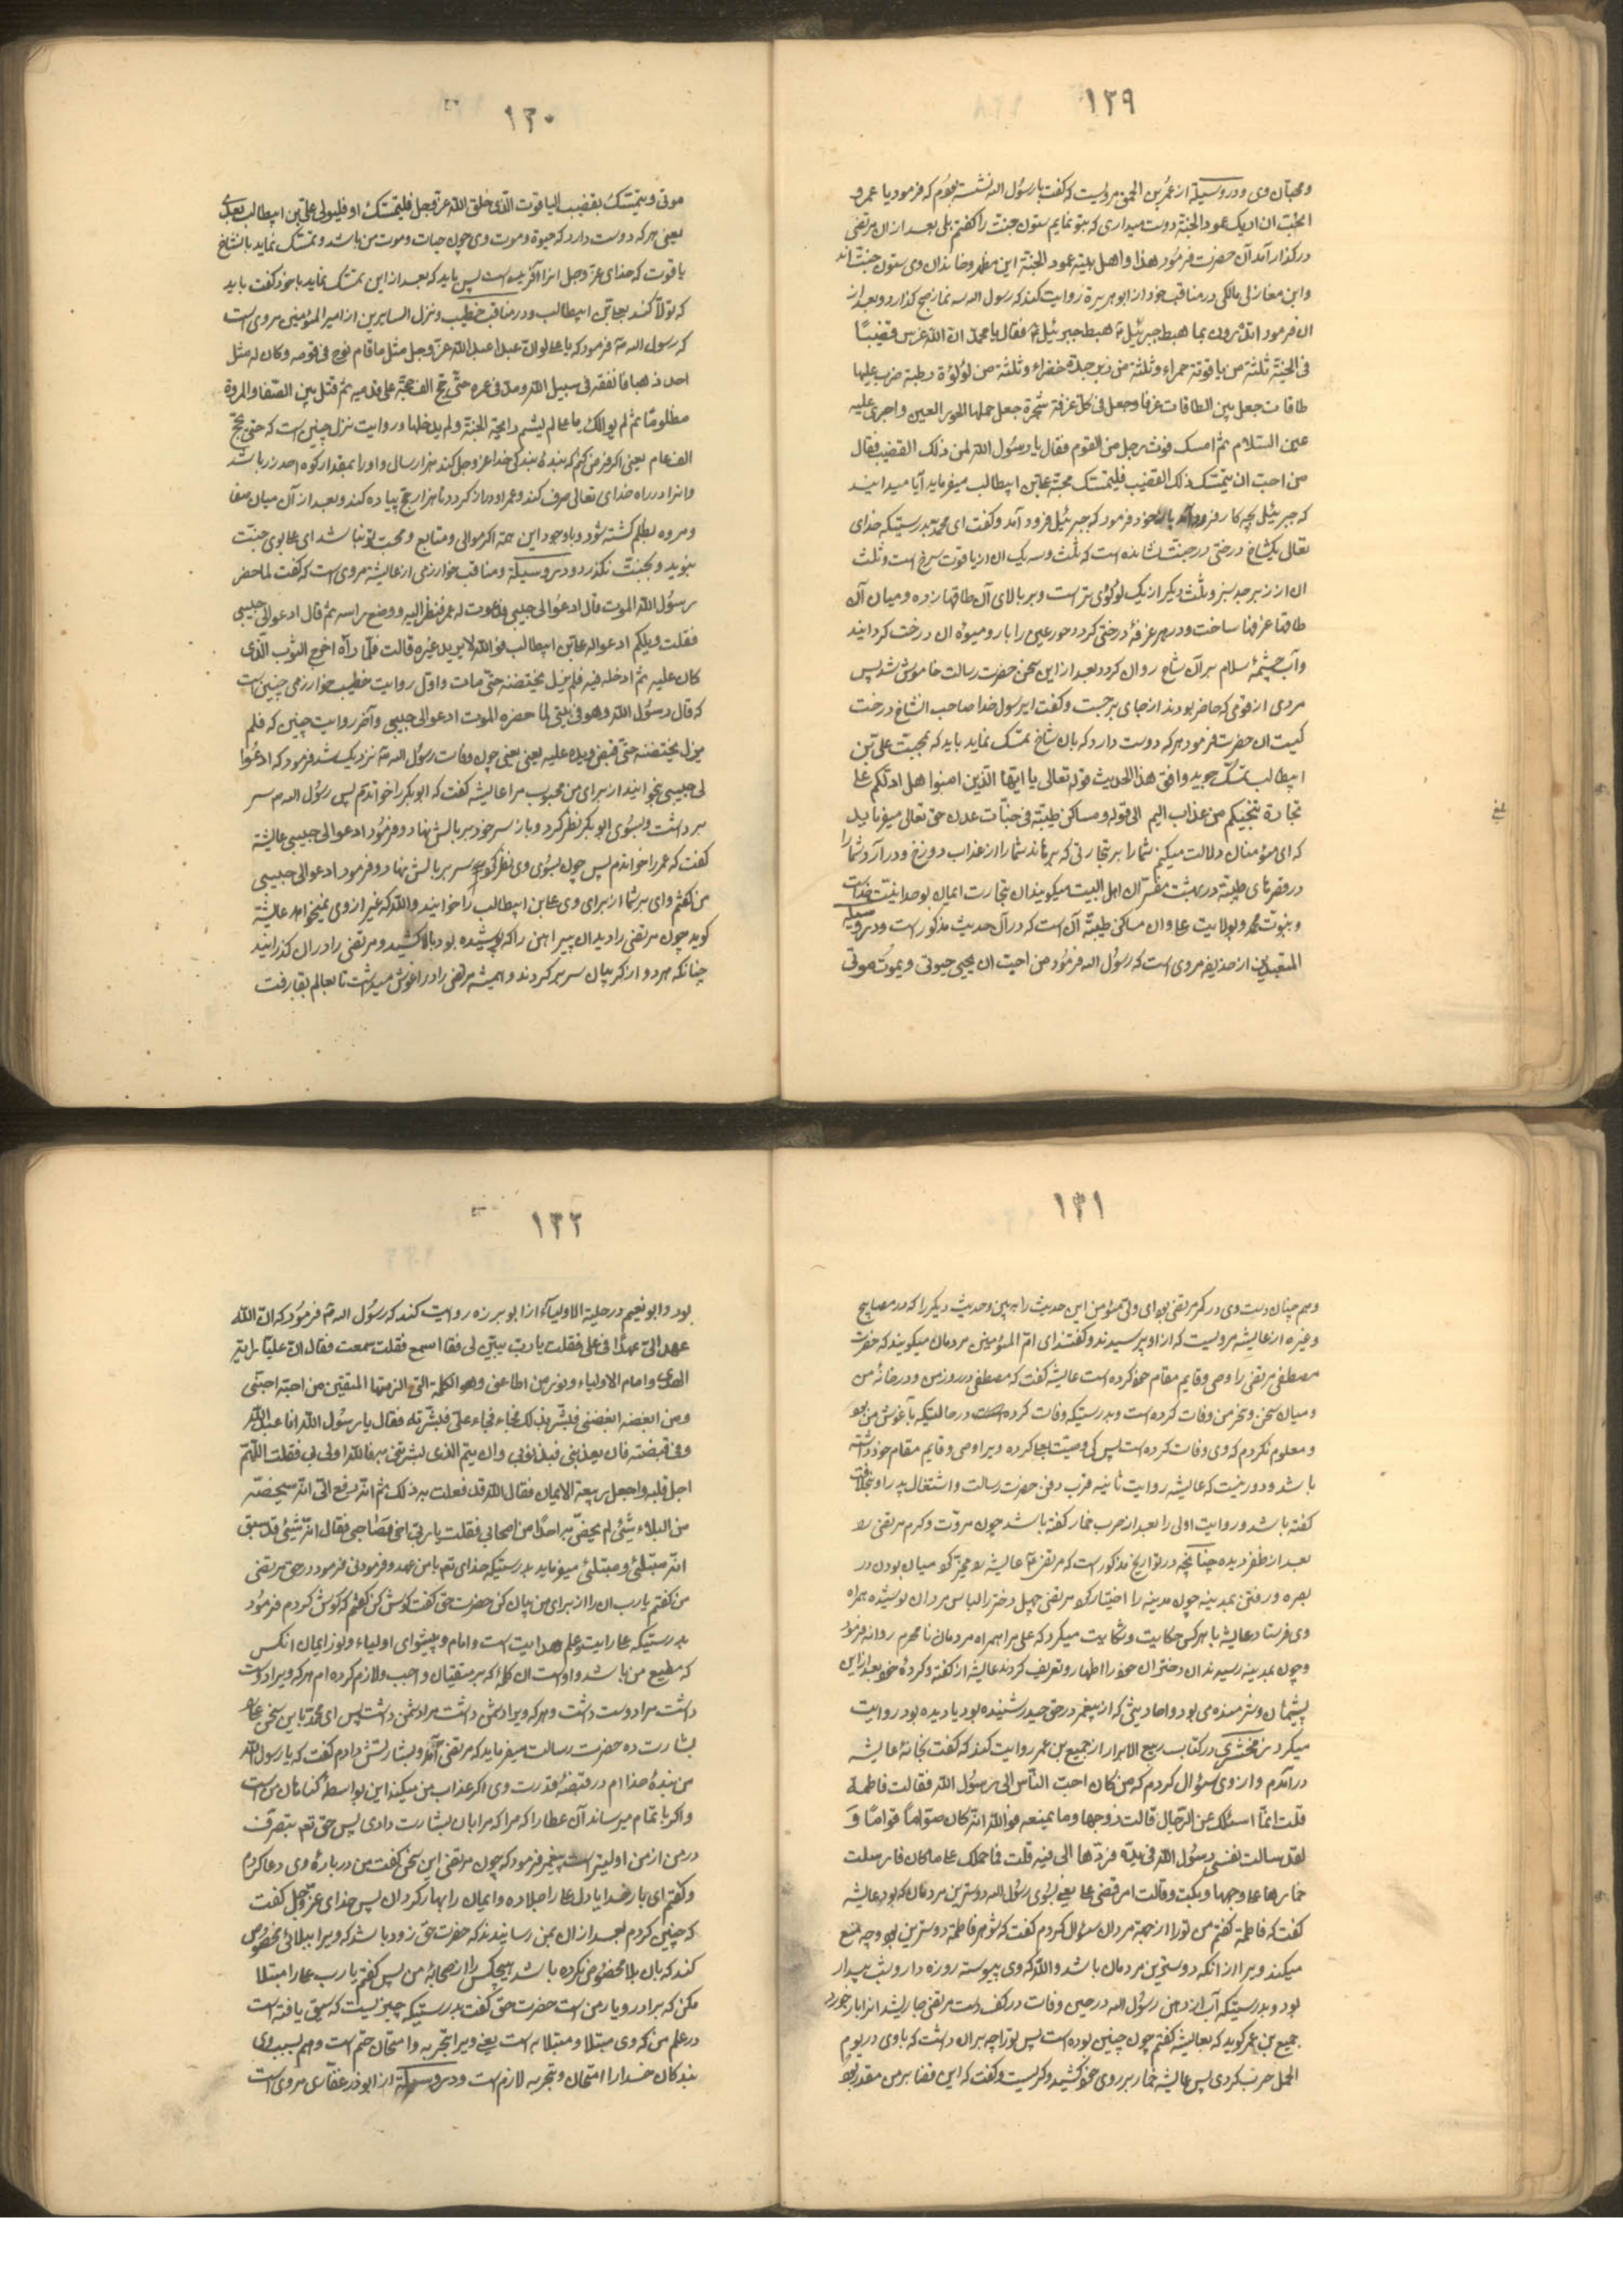 ۱۲۹
ومحبان وی ودر وسیلة از عمرو بن الحمق مرویست که گفت با رسول الله نشسته بودم که فرمود یا عمرو
اتحب ان اریک عمود الجنة دوست میداری که بتو نمایم ستون جنت را گفتم بلی بعد از آن مرتضی
در گذار آمد آن حضرت فرمود هذا واهل بیته عمود الجنة این مظهر وخاندان وی ستون جنت اند
وابن مغازلی مالکی در مناقب خود از ابو هریرة روایت کند که رسول الله سه نماز صبح گذارد وبعد از
ان فرمود اتدرون بما هبط جبرئیل ثم هبط جبرئیل فقال یا محمد ان الله غرس قضیبًا
فی الجنة ثلثة من یاقوتة حمراء وثلثة من زبرجدة خضراء وثلثة من لؤلؤة رطبة ضرب علیها
طاقات جعل بین الطاقات غرفا وجعل فی کل غرفة شجرة جعل حملها الحور العین واجری علیه
عین السلام ثم امسک فوثب رجل من القوم فقال یا رسول الله لمن ذلک القضیب فقال
من احب ان یتمسک ذلک القضیب فلیتمسک محبة علی بن ابیطالب میفرماید آیا میدانید
که جبرئیل بچه کار فرود آمد خود فرمود که جبرئیل فرود آمد وگفت ای محمد بدرستیکه خدای
تعالی یکشاخ درختی در جنت نشانده است که ثلث وسه یک ان از یاقوت سرخ است وثلث
ان از زبرجد سبز وثلث دیگر از یک لؤلؤی تر است وبر بالای آن طاقها زده ومیان آن
طاقها غرفها ساخت ودر هر غرفهٔ درختی کرد وحور عین را بار ومیوهٔ ان درخت گردانید
وآب چشمهٔ سلام بر آن شاخ روان کرد وبعد از این سخن حضرت رسالت خاموش شد پس
مردی از قومی که حاضر بودند از جای برجست وگفت ای رسول خدا صاحب الشاخ درخت
کیست ان حضرت فرمود هر که دوست دارد که بان شاخ تمسک نماید باید که بمحبت علی بن
ابیطالب تمسک جوید وافق هذا الحدیث قوله تعالی یا ایها الذین امنوا هل ادلکم علی
تجارة تنجیکم من عذاب الیم الی قوله ومساکن طیبة فی جنات عدن حق تعالی میفرماید
که ای مؤمنان دلالت میکنم شما را بر تجارتی که برهاند شما را از عذاب دوزخ ودر آرد شما را
در قصرهای طیبة در بهشت مفسران اهل البیت میگویند ان تجارت ایمان بوحدانیت خداست
وبنوت محمد وبولایت علی وان مساکن طیبة آن است که در آن حدیث مذکور است ودر وسیلة
المتعبدین از حذیفه مروی است که رسول الله فرمود من احب ان یحیی حیوتی ویموت موتی
۱۳۰
موتی ویتمسک بقضیب الیاقوت الذی خلق الله عز وجل فلیتمسک او فلیوالی علی بن ابیطالب بعدی
یعنی هر که دوست دارد که حیوة وموت وی چون حیات وموت من باشد وتمسک نماید بانشاخ
یاقوت که خدای عز وجل انرا آفریده است پس باید که بعد از این تمسک نماید یا خود گفت باید
که تولا کند بعلی بن ابیطالب ودر مناقب خطیب ونزل السایرین از امیر المؤمنین مروی است
که رسول الله فرمود که یا علی لو ان عبدا عبد الله عز وجل مثل ما قام نوح فی قومه وکان له مثل
احد ذهبا فانفقه فی سبیل الله ومد فی عمره حتی حج الف حجة علی قدمیه ثم قتل بین الصفا والمروة
مظلوما ثم لم یوالک یا علی لم یشم رایحة الجنة ولم یدخلها ودر روایت نزل چنین است که حتی یحج
الف عام یعنی اگر فرض کنم که بندهٔ بندگی خدا عز وجل کند هزار سال واو را بمقدار کوه احد زر باشد
وانرا در راه خدای تعالی صرف کند وعمر او دراز گردد تا هزار حج پیاده کند وبعد از آن میان صفا
ومروه بظلم کشته شود وباوجود این همه اگر موالی ومتابع ومحب تو نباشد ای علی بوی جنت
نبوید وبجنت نگذرد ودر وسیلة ومناقب خوارزمی از عایشه مروی است که گفت لما حضر
رسول الله الموت قال ادعو الی حبیبی فدعوت له عمر فنظر الیه ووضع راسه ثم قال ادعو الی حبیبی
فقلت ویلکم ادعو اله علی بن ابیطالب فو الله لا یرید غیره قالت فلما رآه اخرج الثوب الذی
کان علیه ثم ادخله فیه فلم یزل یحتضنه حتی مات واول روایت خطیب خوارزمی چنین است
که قال رسول الله وهو فی بیتی لما حضره الموت ادعو الی حبیبی وآخر روایت چنین که فلم
یزل یحتضنه حتی قبض ویده علیه یعنی یعنی چون وفات رسول الله نزدیک شد فرمود که ادعوا
لی حبیبی بخوانید از برای من محبوب مرا عایشه گفت که ابو بکر را خواندم پس رسول الله سر
برداشت وبسوی ابو بکر نظر کرد وباز سر خود بر بالش نهاد وفرمود ادعو الی حبیبی عایشة
گفت که عمر را خواندم پس چون بسوی وی نظر کرد سر بر بالش نهاد وفرمود ادعو الی حبیبی
من گفتم وای بر شما از برای وی علی بن ابیطالب را خوانید والله که غیر از وی نمیخواهد عایشة
گوید چون مرتضی را دید ان پیراهن را که پوشیده بود بالا کشید ومرتضی را در ان گذرانید
چنانکه هر دو از گریبان سر بر کردند وهمیشه مرتضی را در آغوش میداشت تا بعالم بقا رفت
۱۳۱
وهم چنان دست وی در کمر مرتضی بود ای ولی مؤمن این حدیث را ببین وحدیث دیگر را که در مصابیح
وغیره از عایشه مرویست که از او پرسیدند وگفتند ای ام المؤمنین مردمان میگویند که حضرت
مصطفی مرتضی را وصی وقایم مقام خود کرده است عایشه گفت که مصطفی در روز من ودر خانهٔ من
ومیان سحر ونحر من وفات کرده است وبدرستیکه وفات کرده است در حالتیکه بآغوش من بود
ومعلوم نکردم که وی وفات کرده است پس کی وصیت بعلی کرده ویرا وصی وقایم مقام خود داشته
باشد ودور نیست که عایشه روایت ثانیه قرب دفن حضرت رسالت واشتغال پدر او بخلافت
گفته باشد وروایت اولی را بعد از حرب جمل گفته باشد چون مروت وکرم مرتضی را
بعد از ظفر دیده چنانچه در تواریخ مذکور است که مرتضی عایشه را مخیر کرد میان بودن در
بصره ورفتن بمدینه چون مدینه را اختیار کرد مرتضی چهل دختر را لباس مردان پوشیده همراه
وی فرستاد عایشه با هر کس حکایت وشکایت میکرد که علی مرا همراه مردمان نامحرم روانه فرمود
وچون بمدینه رسیدند ان دختران خود را اظهار وتعریف کردند عایشه از گفته وکردهٔ خود بعد از این
پشیمان وشرمنده می بود واحادیثی که از پیغمبر در حق حیدر شنیده بود یا دیده بود روایت
میکرد زمخشری در کتاب ربیع الابرار از جمیع بن عمر روایت کند که گفت بخانهٔ عایشه
درآمدم واز وی سؤال کردم که من کان احب الناس الی رسول الله فقالت فاطمة
قلت انما اسئلک عن الرجال قالت زوجها وما یمنعه فو الله انه کان صواما قواما و
لقد سالت نفس رسول الله فی یده فردها الی فیه قلت فما حملک علی ما کان فارسلت
خمارها علی وجهها وبکت وقالت امر قضی علی یعنی بسوی رسول الله دوسترین مردمان که بود عایشه
گفت که فاطمة گفتم من تو را از جهة مردان سؤال کردم گفت که شوهر فاطمة دوسترین بود وچه منع
میکند ویرا از انکه دوسترین مردمان باشد والله که وی پیوسته روزه دار وشب بیدار
بود وبدرستیکه آب از دهن رسول الله در حین وفات در کف دست مرتضی جاری شد انرا باز خورد
جمیع بن عمر گوید که بعایشه گفتم چون چنین بوده است پس تو را چه بران داشت که با وی در یوم
الجمل حرب کردی پس عایشه خمار بر روی خود کشید وگریست وگفت که این قضا بر من مقدر بود
۱۳۲
بود وابو نعیم در حلیة الاولیاء از ابو برزه روایت کند که رسول الله فرمود که ان الله
عهد الی عهدا فی علی فقلت یا رب بیّن لی فقا اسمع فقلت سمعت فقال ان علیا رایة
الهدی وامام الاولیاء ونور من اطاعنی وهو الکلمة التی الزمتها المتقین من احبه احبنی
ومن ابغضه ابغضنی فبشره بذلک فجاء علی فبشرته فقال یا رسول الله انا عبد الله
وفی قبضته فان یعذبنی فبذنوبی وان یتم الذی بشرتنی به فالله اولی بی فقلت اللهم
اجل قلبه واجعل ربیعة الایمان فقال الله قد فعلت به ذلک ثم انه رفع الی انه سیخصه
من البلاء بشئ لم یخص به احدا من اصحابی فقلت یا رب اخی وصاحبی فقال انه شئ قد سبق
انه مبتلئ ومبتلئ به میفرماید بدرستیکه خدای تعم با من عهد وفرمود در حق مرتضی
من گفتم یا رب ان را از برای من بیان کن حضرت حق گفت گوش کن گفتم که گوش کردم فرمود
بدرستیکه علی رایت وعلم هدایت است وامام وپیشوای اولیاء ونور ایمان انکس
که مطیع من باشد واوست ان کلمهٔ که بر متقیان واجب ولازم کرده ام هر که ویرا دوست
داشت مرا دوست داشت وهر که ویرا دشمن داشت مرا دشمن داشت پس ای محمد باین سخن علی را
بشارت ده حضرت رسالت میفرماید که مرتضی آمد وبشارتش دادم گفت که یا رسول الله
من بندهٔ خدا ام در قبضهٔ قدرت وی اگر عذاب من میکند این بواسطهٔ گناهان من است
واگر باتمام میرساند آن عطا را که مرا که مرا بان بشارت دادی پس حق تعم بتصرف
در من از من اولیتر است پیغمبر فرمود که چون مرتضی این سخن گفت من در بارهٔ وی دعا کردم
وگفتم ای بار خدایا دل علی را جلا ده وایمان را بهار گردان پس خدای عز وجل گفت
که چنین کردم بعد از ان بمن رسانیدند که حضرت حق زود باشد که ویرا ببلائی مخصوص
کند که بان بلا مخصوص نکرده باشد هیچکس را از صحابهٔ من پس گفتم یا رب علی را مبتلا
مکن که برادر ویار من است حضرت حق گفت بدرستیکه چیزیست که سبق یافته است
در علم من که وی مبتلا ومبتلا به است یعنی ویرا تجربه وامتحان حتم است وهم بسبب وی
بندگان خدا را امتحان وتجربه لازم است ودر وسیلة از ابوذر غفاری مروی است